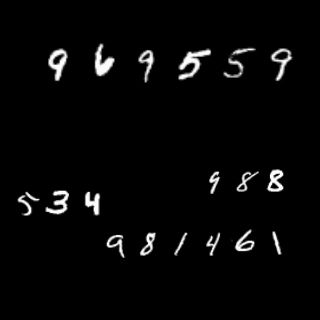 969559
988
534
981461